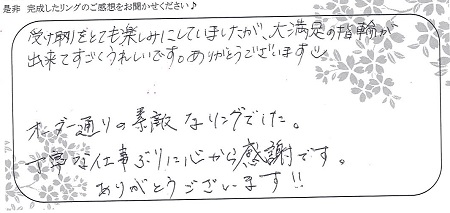 是非 完成したリングのご感想をお聞かせください♪
受け取りをとても楽しみにしていましたが、大満足の指輪が
出来てすごくうれしいです。ありがとうございます
オーダー通りの素敵なリングでした。
丁寧な仕事ぶりに心から感謝です。
ありがとうございます!!